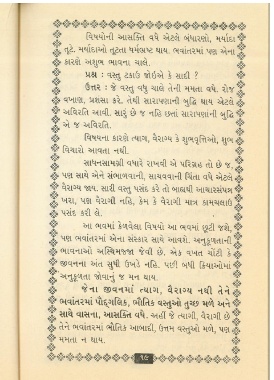 વિષયોની આસક્તિ વધે એટલે બંધારણો, મર્યાદા
તૂટે. મર્યાદાઓ તૂટતા ધર્મભ્રષ્ટ થાય. ભવાંતરમાં પણ એના
કારણે અશુભ ભાવના ચાલે.
પ્રશ્ન : વસ્તુ ટકાઉ જોઈએ કે સાદી ?
ઉત્તર : જે વસ્તુ વધુ ચાલે તેની મમતા વધે. રોજ
વખાણ, પ્રશંસા કરે. તેથી સારાપણાની બુદ્ધિ થાય એટલે
અવિરતિ આવી. સારું છે જ નહિ છતાં સારાપણાંની બુદ્ધિ
એ જ અવિરતિ.
વિષયના કારણે ત્યાગ, વૈરાગ્ય કે શુભવૃત્તિઓ, શુભ
વિચારો આવતા નથી.
સાધનસામગ્રી વધારે રાખવી એ પરિગ્રહ તો છે જ,
પણ સાથે એને સંભાળવાની, સાચવવાની ચિંતા વધે એટલે
વૈરાગ્ય જાય. સાદી વસ્તુ પસંદ કરે તો બાહ્યથી આચારસંપન્ન
ખરા, પણ વૈરાગી નહિ, કેમ કે વૈરાગી માત્ર કામચલાઉ
પસંદ કરી લે.
આ ભવમાં કેળવેલા વિષયો આ ભવમાં છૂટી જશે,
પણ ભવાંતરમાં એના સંસ્કાર સાથે આવશે. અનુકૂળતાની
ભાવનાઓ અસ્થિમજ્જા જેવી છે. એક વખત ચોંટી કે
જીવનના અંત સુધી ઉખડે નહિ. પછી બધી ક્રિયાઓમાં
અનુકૂળતા જોવાનું જ મન થાય.
જેના જીવનમાં ત્યાગ, વૈરાગ્ય નથી તેને
ભવાંતરમાં પૌદ્ગલિક, ભૌતિક વસ્તુઓ તુચ્છ મળે અને
સાથે વાસના, આસક્તિ વધે. અહીં જે ત્યાગી, વૈરાગી છે
તેને ભવાંતરમાં ભૌતિક આબાદી, ઉત્તમ વસ્તુઓ મળે, પણ
મમતા ન થાય.